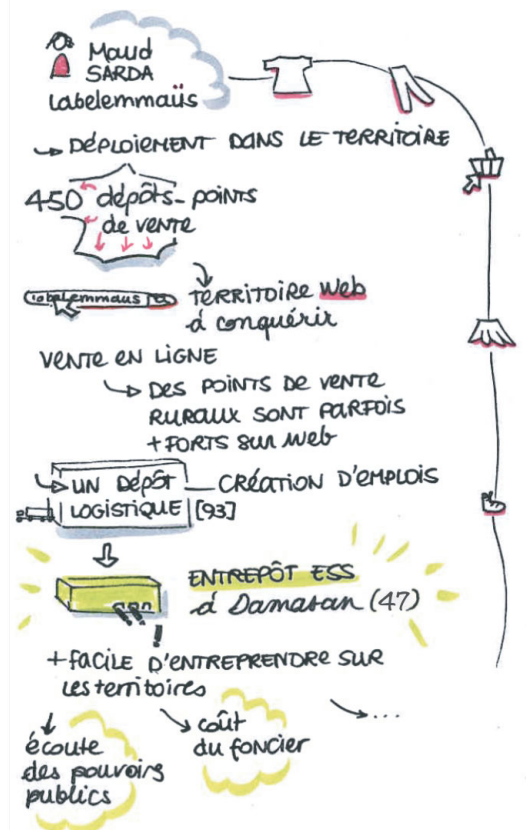 Maud
SARDA
Labelemmaüs
DÉPLOIEMENT DANS LE TERRITOIRE
450 dépôts-points
de vente
labelemmaus
TERRITOIRE Web
à conquérir
VENTE EN LIGNE
DES POINTS DE VENTE
RURAUX SONT PARFOIS
+ FORTS sur web
UN DÉPÔT
LOGISTIQUE [93]
CRÉATION D'EMPLOIS
ENTREPÔT ESS
à Damazan (47)
+ FACILE D'ENTREPRENDRE SUR
les territoires
écoute
des pouvoirs
publics
coût
du foncier
...